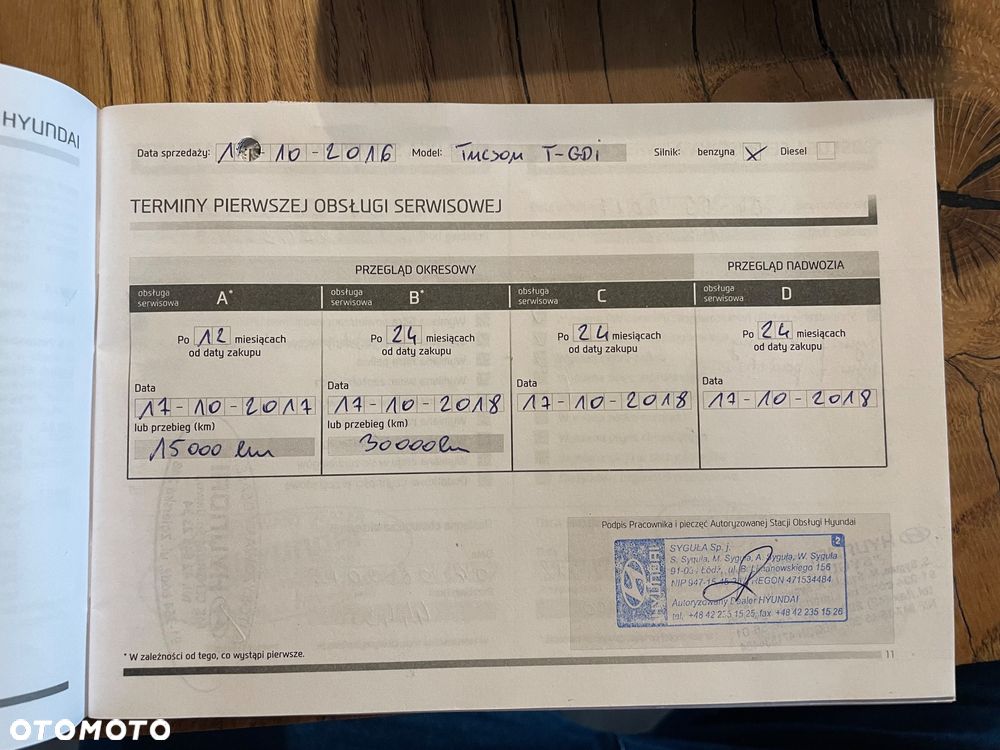 HYUNDAI
Data sprzedaży: 17-10-2016 Model: Tucson T-GDi Silnik: benzyna X Diesel
TERMINY PIERWSZEJ OBSŁUGI SERWISOWEJ
PRZEGLĄD OKRESOWY PRZEGLĄD NADWOZIA
obsługa serwisowa A* obsługa serwisowa B* obsługa serwisowa C obsługa serwisowa D
Po 12 miesiącach Po 24 miesiącach Po 24 miesiącach Po 24 miesiącach
od daty zakupu od daty zakupu od daty zakupu od daty zakupu
Data Data Data Data
17-10-2017 17-10-2018 17-10-2018 17-10-2018
lub przebieg (km) lub przebieg (km)
15000 km 30000km
Podpis Pracownika i pieczęć Autoryzowanej Stacji Obsługi Hyundai
HYUNDAI
2
SYGUŁA Sp. j.
S. Syguła, M. Syguła, A. Syguła, W. Syguła
Łódź, ul. B. Limanowskiego 156
REGON 471534484
Autoryzowany Dealer HYUNDAI
tel. +48 42 235 15 25, fax +48 42 235 15 26
* W zależności od tego, co wystąpi pierwsze.
11
OTOMOTO